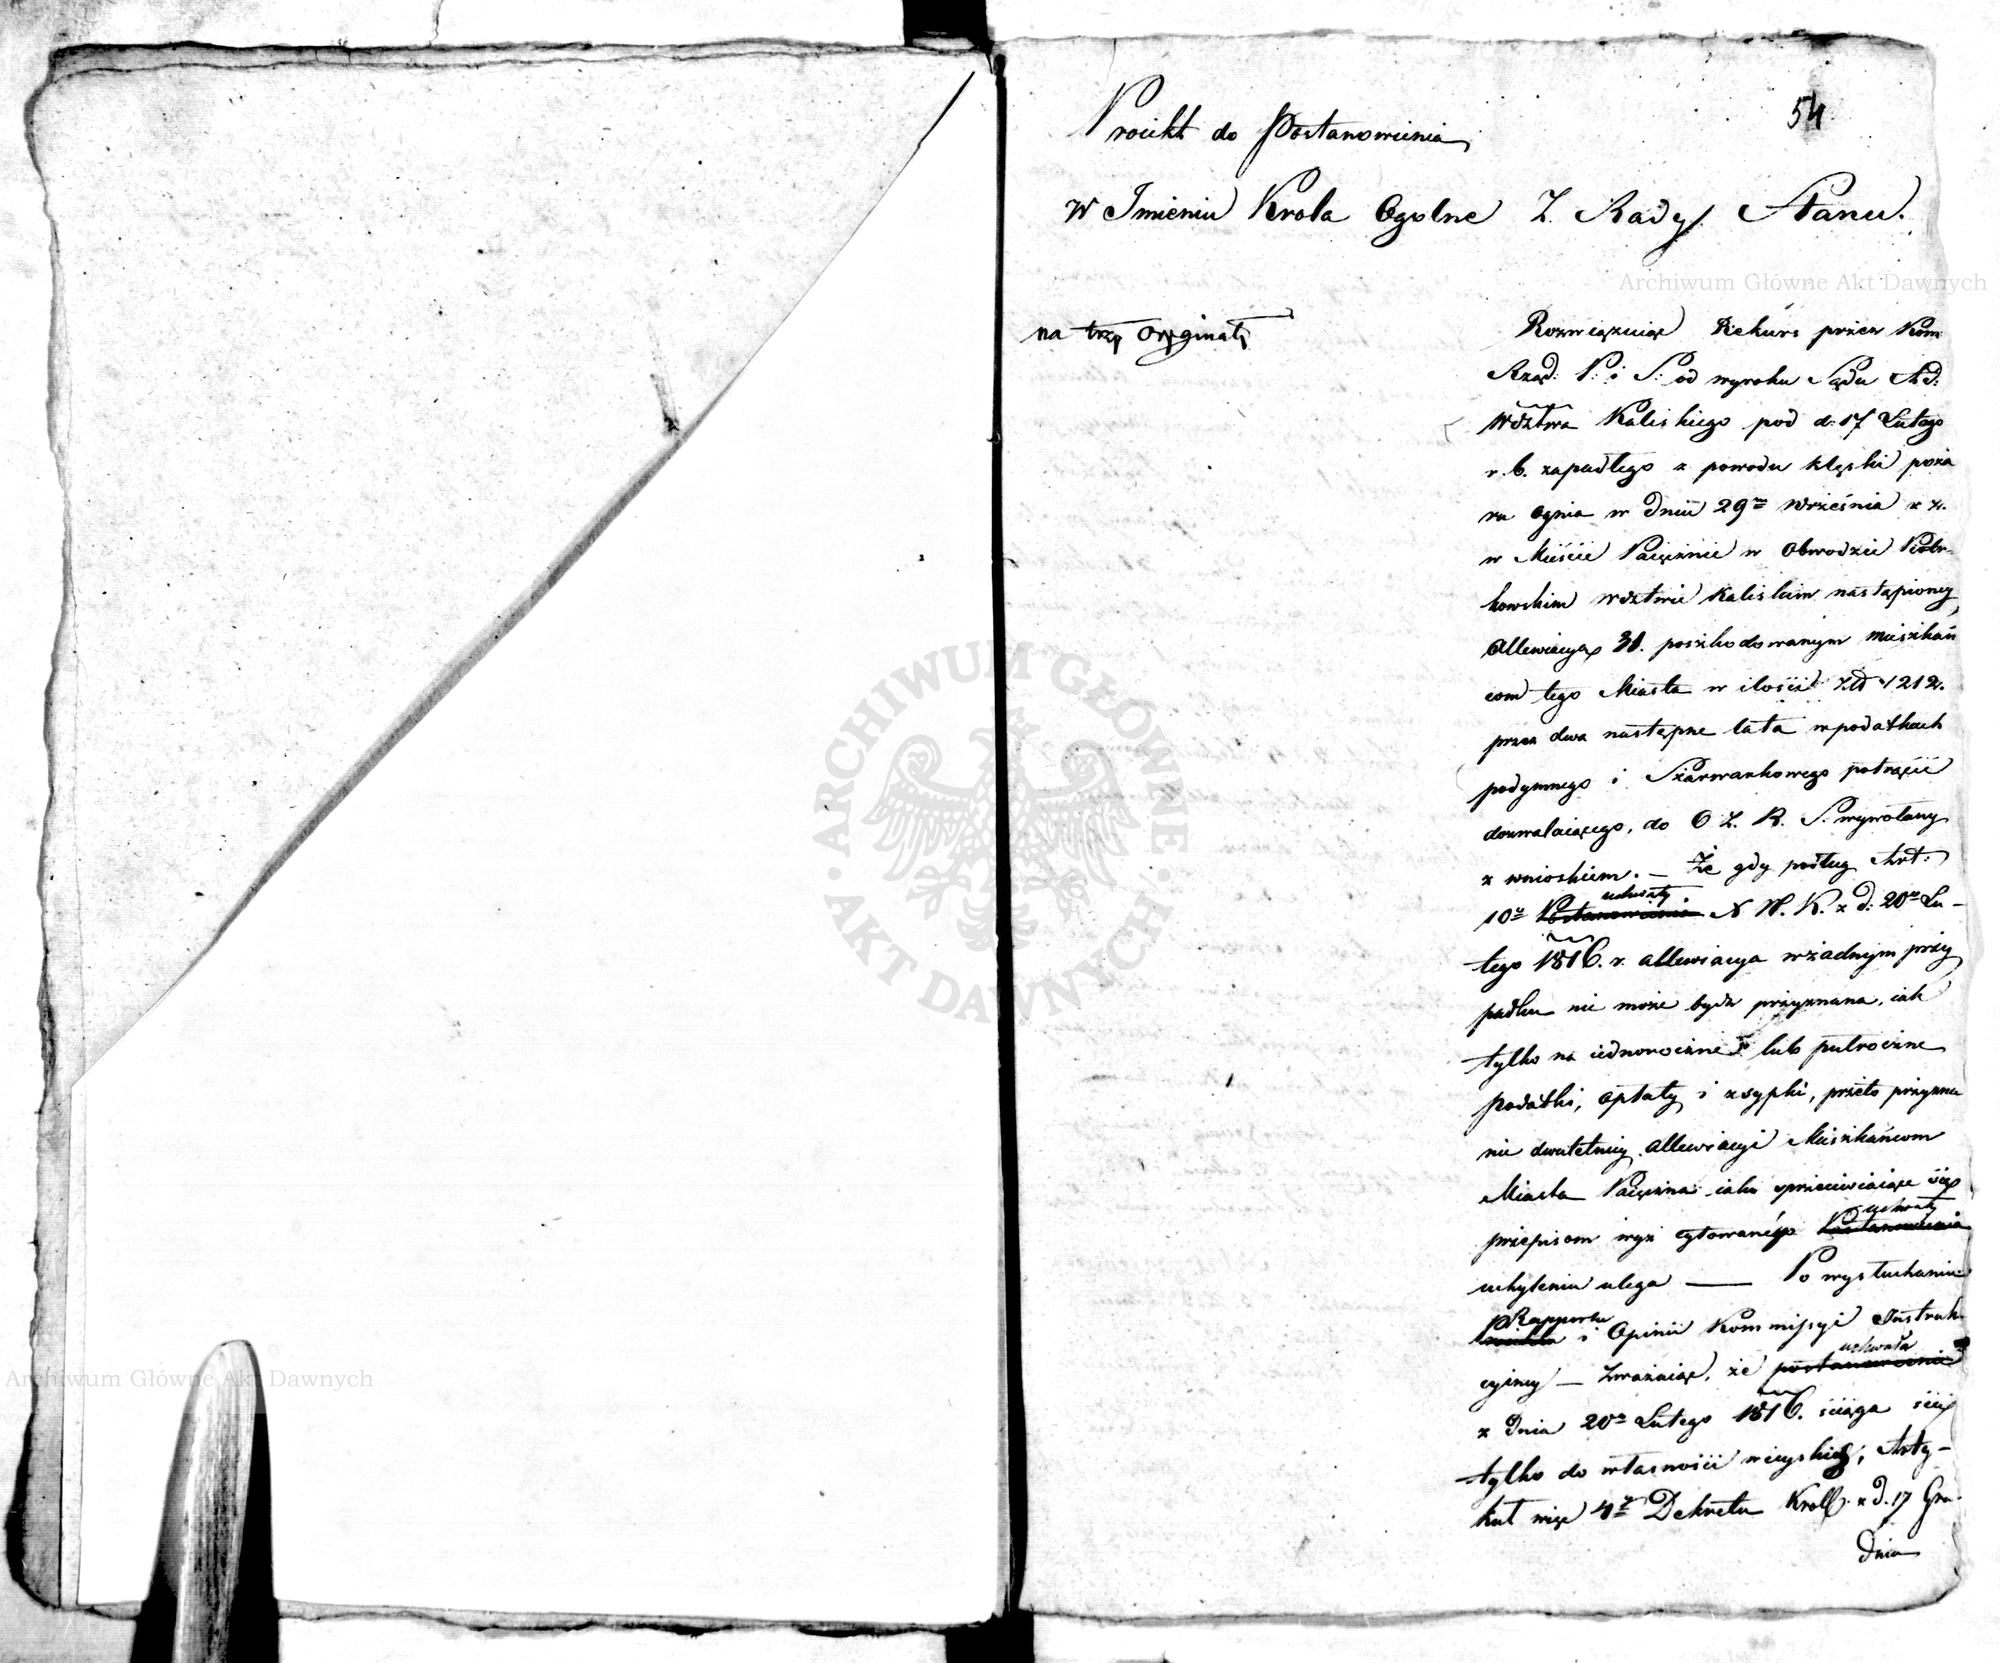 54
Proiekt do Postanowienia
W Imieniu Krola Ogolne Z. Rady Stanu.
na trzy Oryginały
Rozwiązuiąc Rekurs przez Kom:
Rząd: P: i S: od wyroku Sądu Ad:
Wdztwa Kaliskiego pod d: 17 Lutego
r. b. zapadłego z powodu klęski poża
ru Ognia w dniu 29ⁿ Września z. r.
w Mieście Paięcznie w Obwodzie Piotr-
kowskim Wdztwie Kaliskim nastąpioney,
Allewiacyą 31. poszkodowanym mieszkań
com tego Miasta w ilości Złt 1212.
przez dwa następne lata w podatkach
podymnego i Szarwarkowego potrącić
dozwalaiącego, do O Z. R. S. wywołany
z wnioskiem. — Że gdy podług Art:
uchwały
10º Postanowienia N. W. K. z d: 20º Lu-
tego 1816. r. allewiacya w żadnym przy
padku nie może bydz przyznana, iak
tylko na iednoroczne lub pułroczne
podatki, opłaty i zsypki, przeto przyzna
nie dwuletniey allewiacyi Mieszkańcom
Miasta Paięczna iako sprzeciwiaiące się
uchwały
przepisom wyż cytowaney Postanowienia
uchyleniu ulega — Po wysłuchaniu
Rapportu
i Opinii Kommissyi Instruk-
uchwała
cyiney — Zważaiąc, że postanowienie
z Dnia 20º Lutego 1816. ściąga się
tylko do własności wieyskiey, Arty-
kuł więc 4ty Dekretu Kroll. z d. 17 Gru-
dnia
Archiwum Główne Akt Dawnych
Archiwum Główne Akt Dawnych
ARCHIWUM GŁÓWNE AKT DAWNYCH